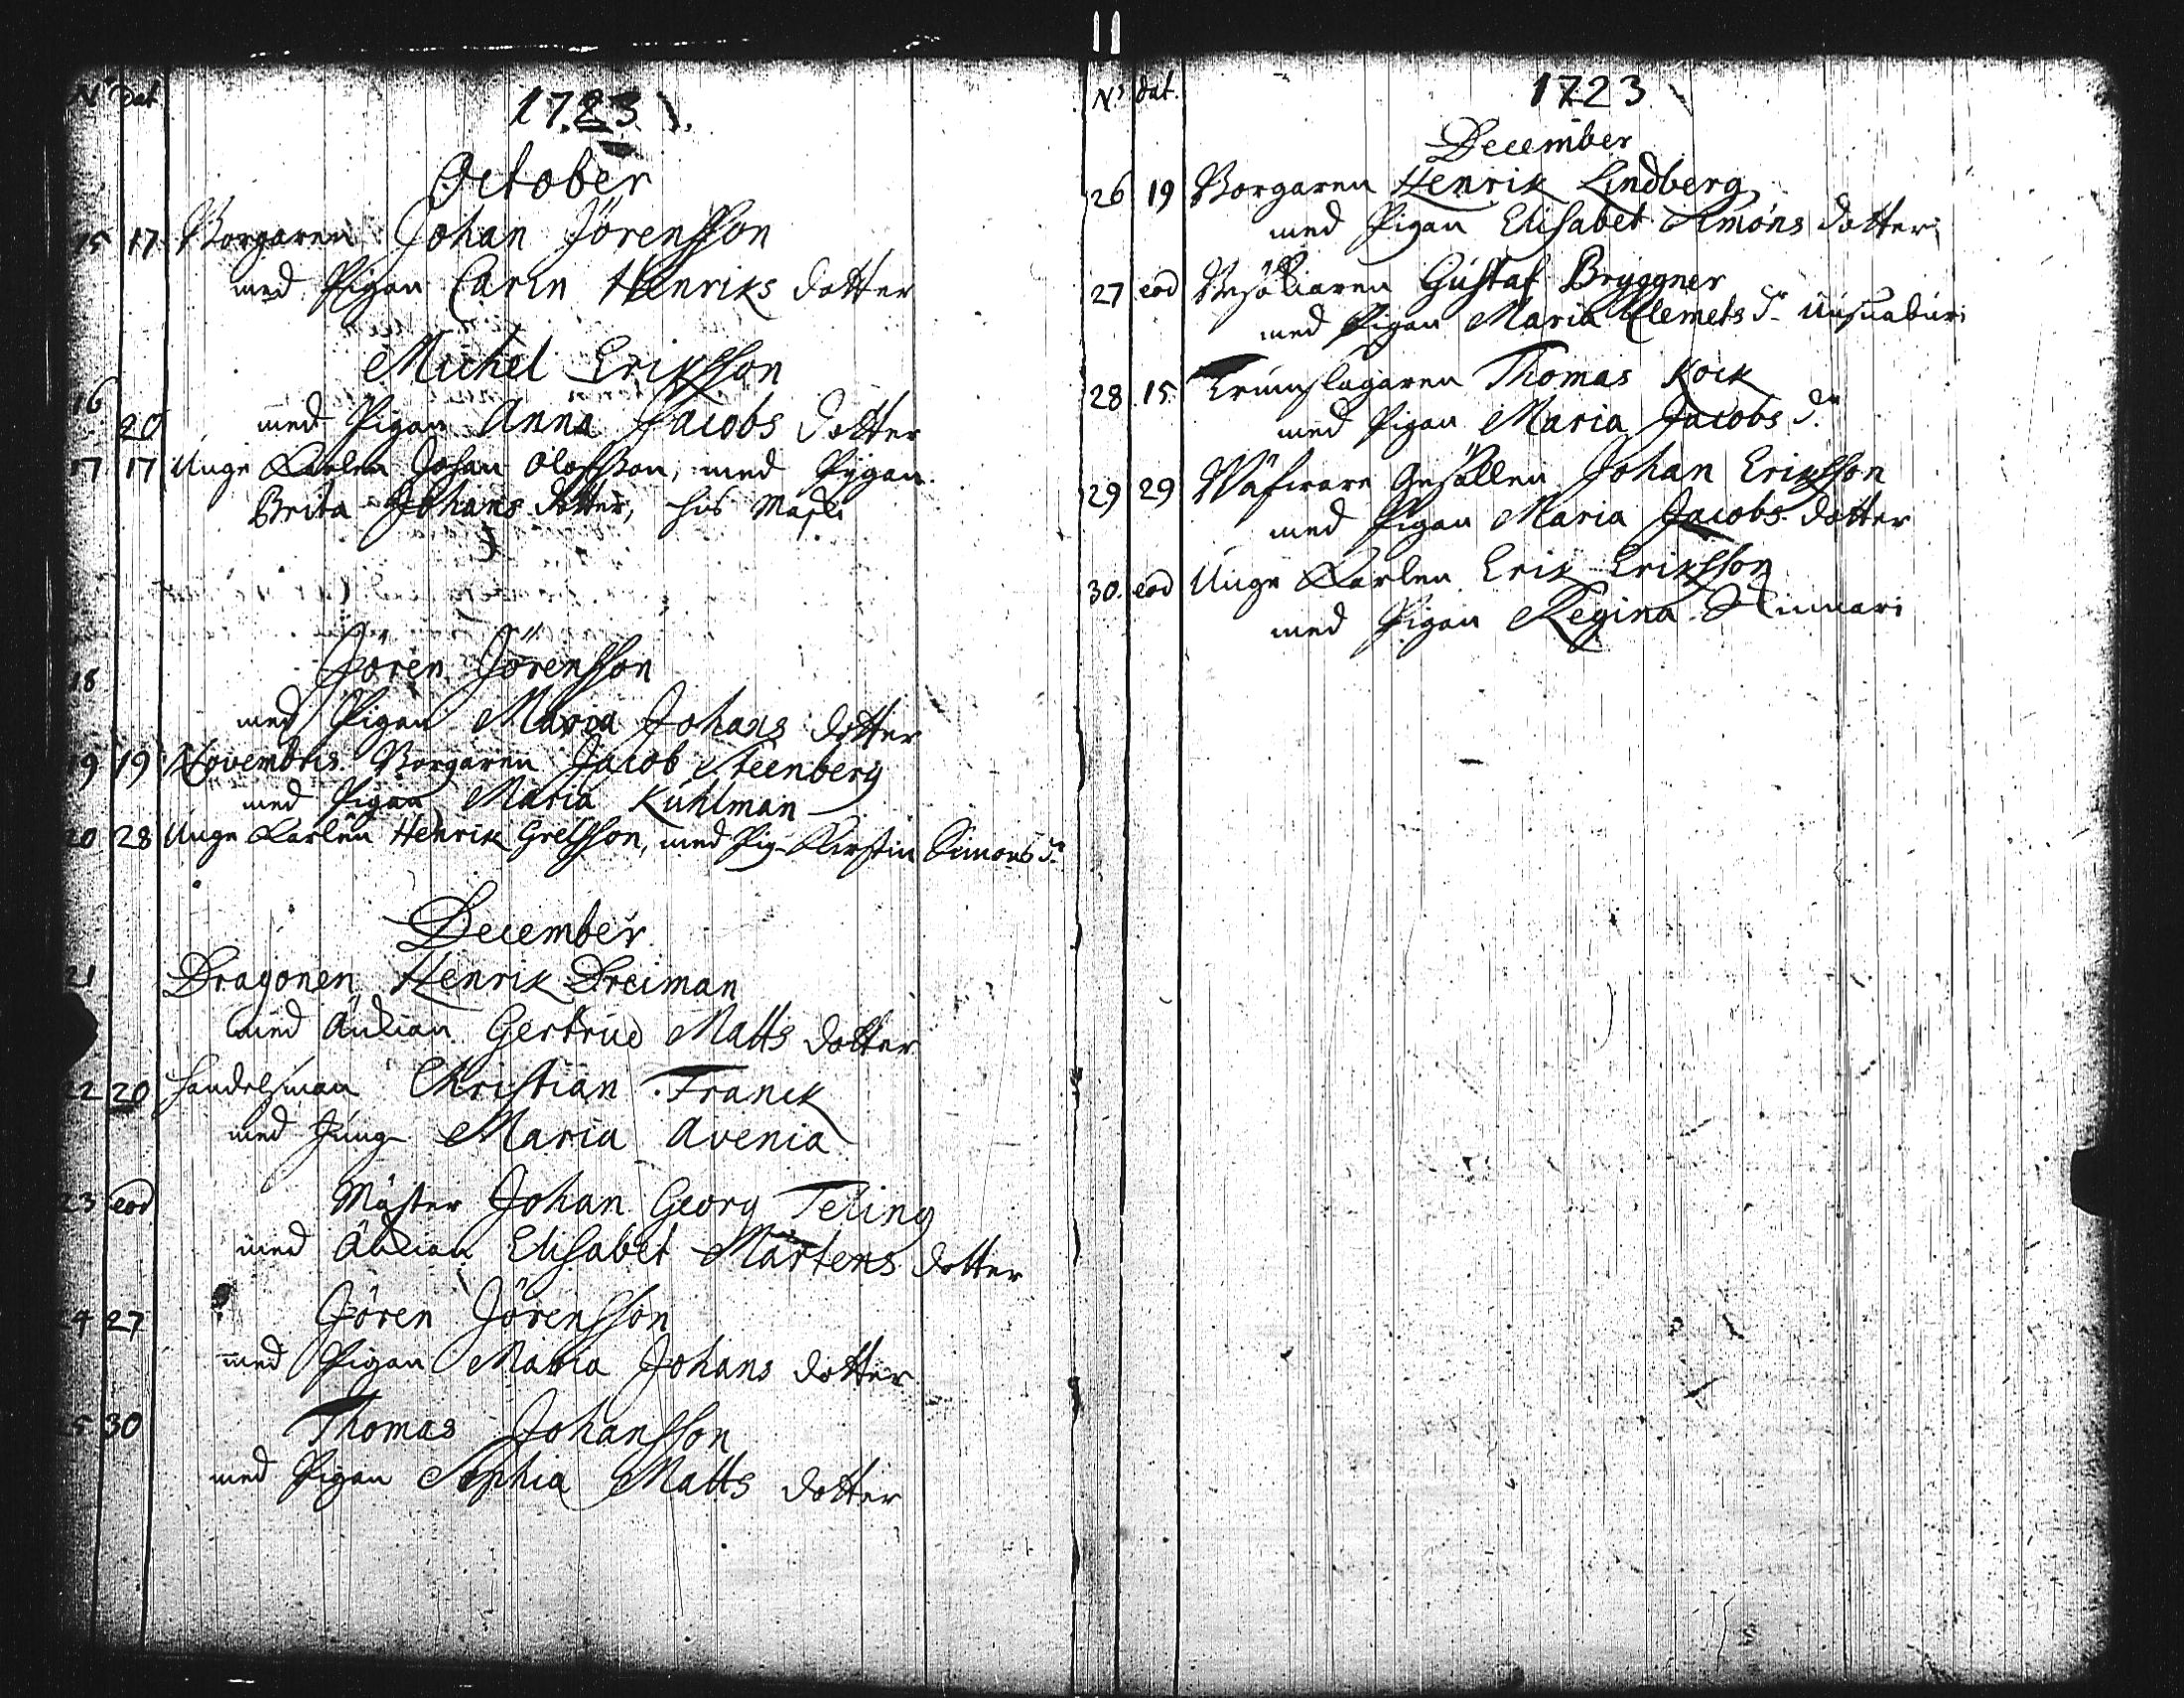 N° Dat
1723
October
15 17 Borgaren Johan Jörensson
med Pigan Carin Henriks dotter
16 Michel Eriksson
20 med Pigan Anna Jacobs dotter
17 17 Unge Karlen Johan Olofsson, med Pigan
Brita Johans dotter, hos
18 Jören Jörensson
med Pigan Maria Johans dotter
19 19 Novembris. Borgaren Jacob Steenberg
med Pigan Maria Kuhlman
20 28 Unge Karlen Henrik Grelsson, med Pig. Kirstin Simons dr
December
21 Dragonen Henrik Dreiman
med Änkian Gertrud Matts dotter
22 20 Handelsman Christian Franck
med Jung Maria Avenia
23 eod Mäster Johan Georg Teling
med Änkian Elisabet Mårtens dotter
24 27 Jören Jörensson
med Pigan Maria Johans dotter
25 30 Thomas Johansson
med Pigan Sophia Matts dotter
N° dat.
1723
December
26 19 Borgaren Henrik Lindberg
med Pigan Elisabet Simons dotter
27 eod Gustaf Bryggner
med Pigan Maria Clemets dr
28 15 Trumslagaren Thomas Kock
med Pigan Maria Jacobs dr
29 29 Wäfware Gesällen Johan Eriksson
med Pigan Maria Jacobs dotter
30. eod Unge Karlen Erik Eriksson
med Pigan Regina